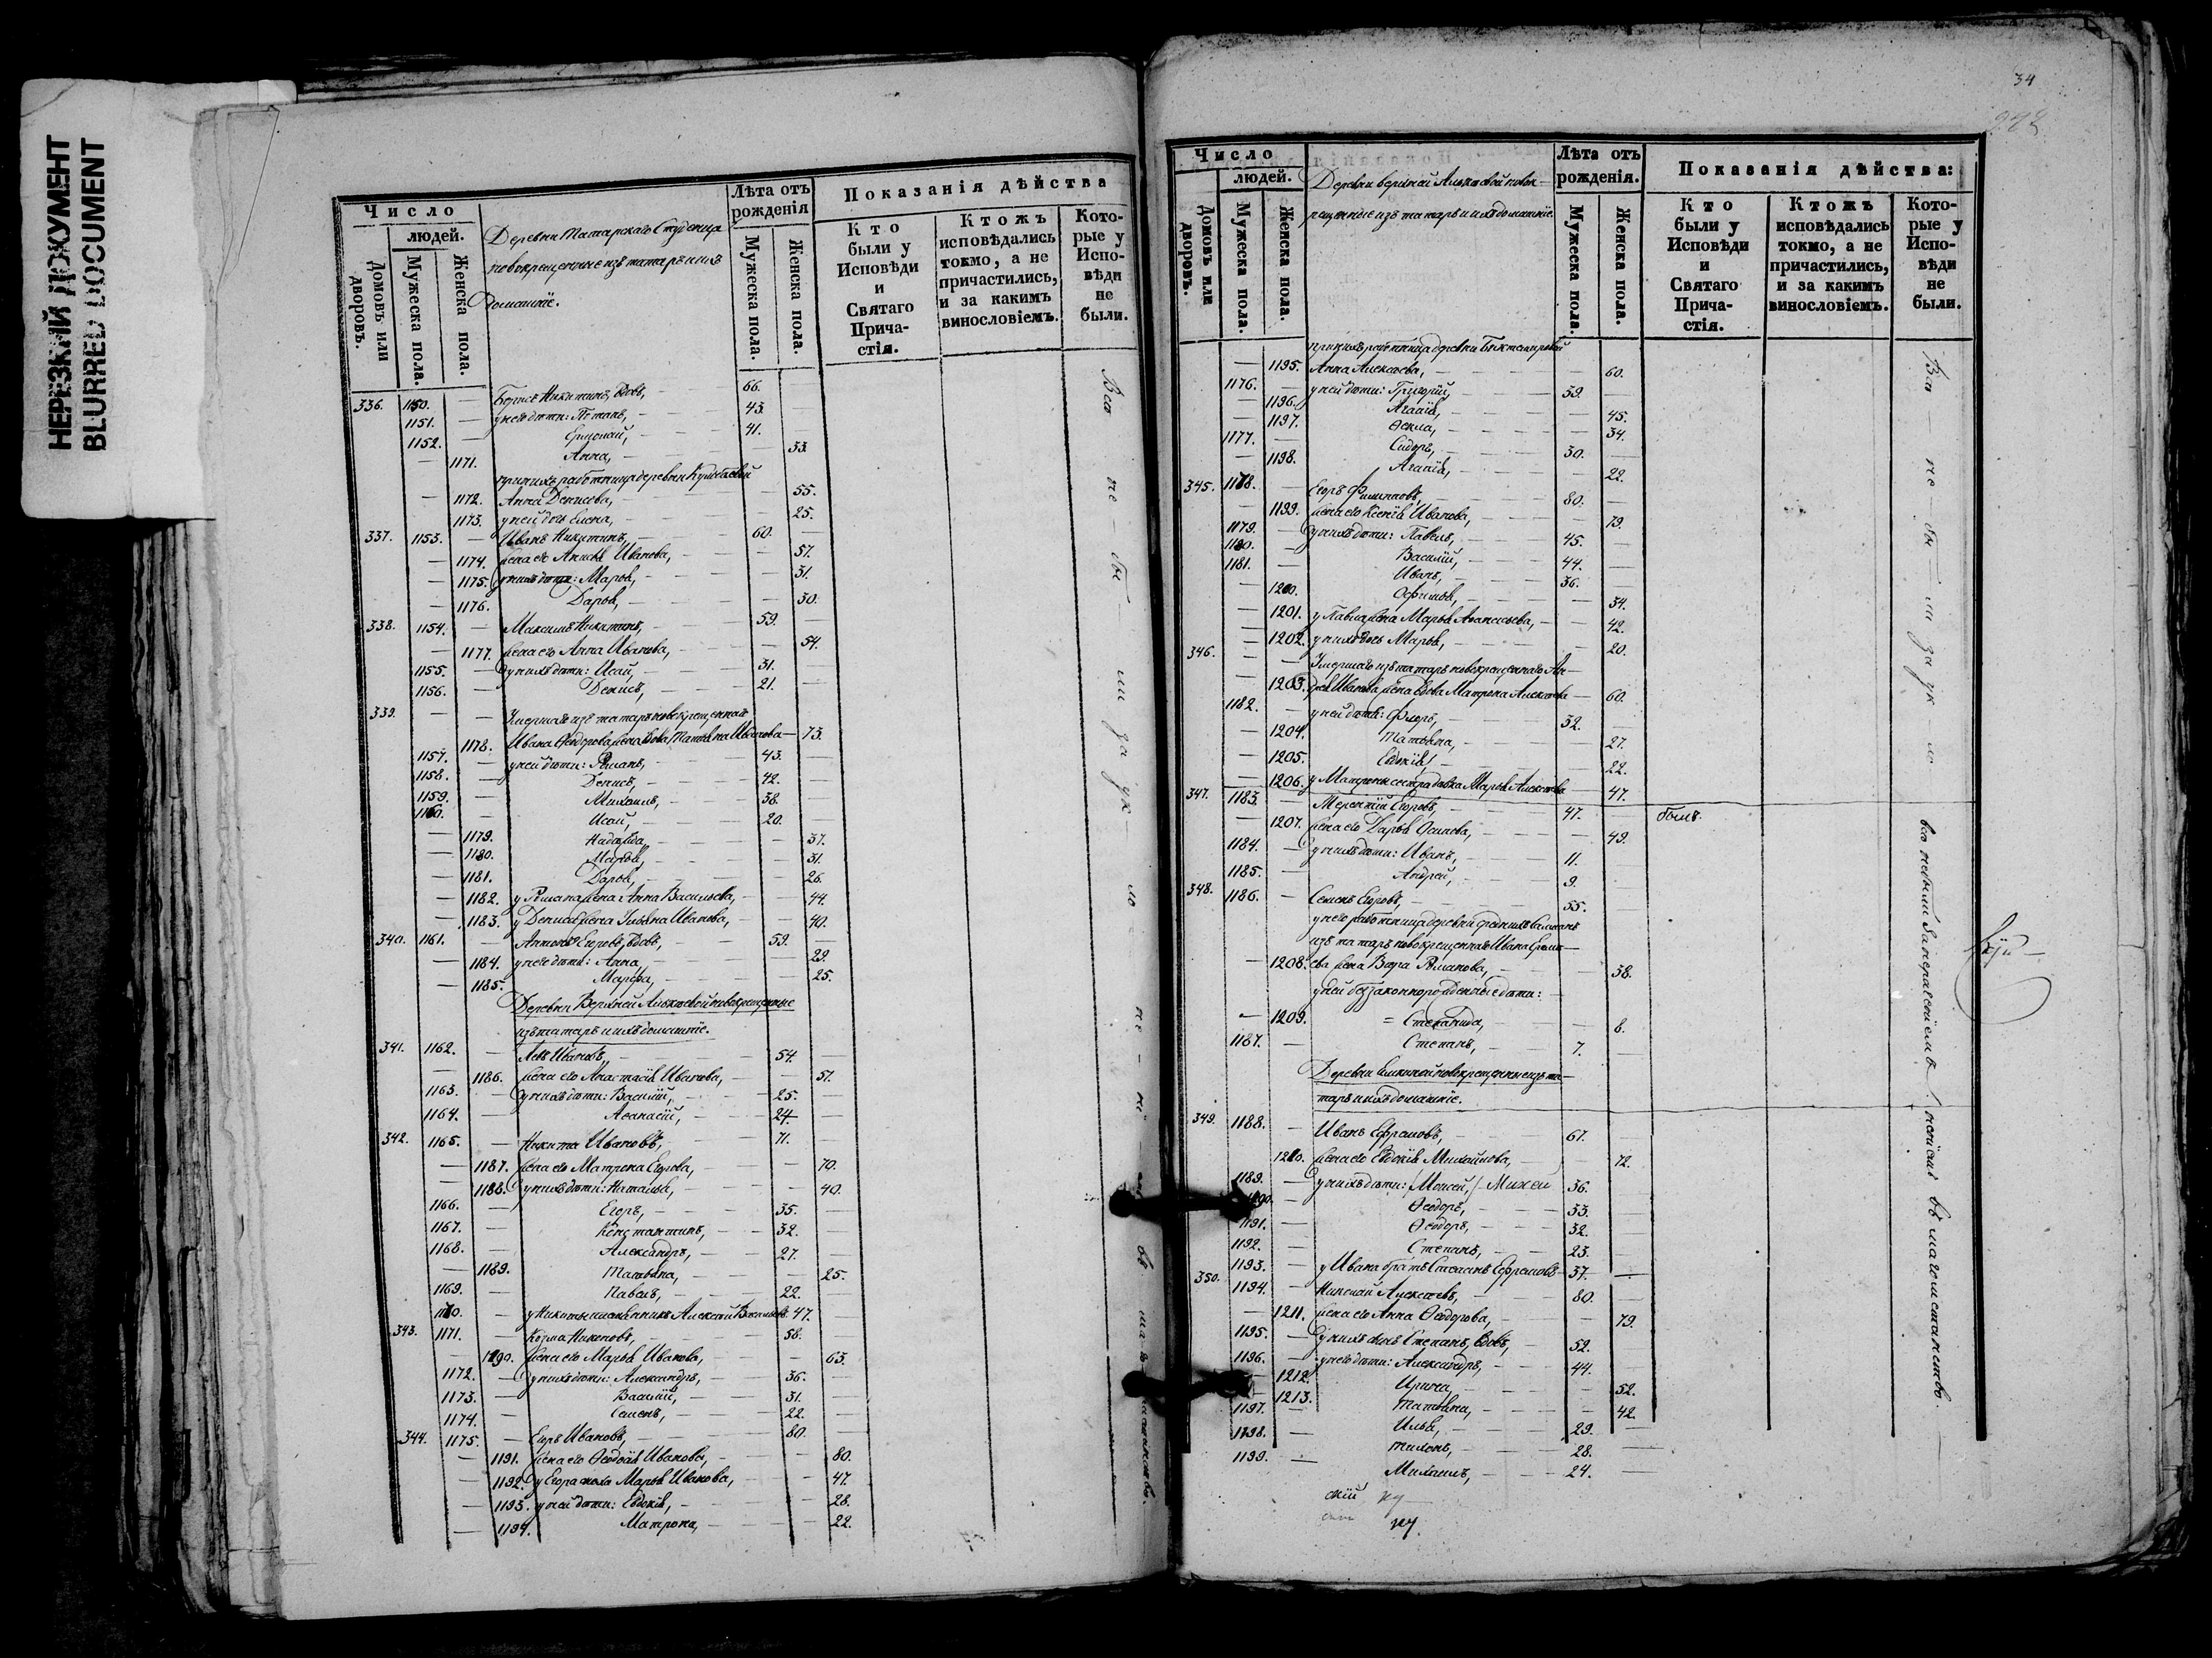 НЕРЕЗКИЙ ДОКУМЕНТ
BLURRED DOCUMENT
Число
людей.
Домовъ или дворовъ.
Мужеска пола.
Женска пола.
Деревни Татарскаго Студенца
новокрещенные изъ татаръ и ихъ
домашніе.
Лѣта отъ рожденія
Мужеска пола.
Женска пола.
Показанія дѣйства
Кто были у Исповѣди и Святаго Прича-стія.
Ктожъ исповѣдались токмо, а не причастились, и за какимъ винословіемъ.
Кото-рые у Испо-вѣди не были.
336. 1150. — Борисъ Никитинъ, вдовъ, — 66.
1151. — у него дѣти: Потапъ, — 43.
1152. — 41.
— 1171. Анна, — 33.
при нихъ работница деревни
— 1172. Анна Денисова, — 55.
1173. у ней дочь Елена, — 25.
337. 1153. — Иванъ Никитинъ, — 60.
— 1174. жена его Анисья Иванова, — 57.
— 1175. у нихъ дѣти: Марья, — 31.
— 1176. Дарья, — 30.
338. 1154. — Максимъ Никитинъ, — 59.
— 1177. жена его Анна Иванова, — 54.
1155. — у нихъ дѣти: Исай, — 31.
1156. — Денисъ, — 21.
339. — — Умершаго изъ татаръ новокрещеннаго
1178. Ивана Ѳеодорова жена вдова Татьяна Иванова — 73.
1157. — у ней дѣти: Романъ, — 43.
1158. — Денисъ, — 42.
1159. — Михаилъ, — 38.
1160. — Исай, — 20.
— 1179. Надежда, — 37.
— 1180. Марья, — 31.
— 1181. Дарья, — 26.
— 1182. у Романа жена Анна Васильева, — 44.
— 1183. у Дениса жена Ульяна Иванова, — 40.
340. 1161. — Антонъ Егоровъ, вдовъ, — 59.
— 1184. у него дѣти: Анна, — 29.
— 1185. Марфа, — 25.
Деревни Верхней Алькеевой новокрещенные
изъ татаръ и ихъ домашніе.
341. 1162. — Левъ Ивановъ, — 54.
— 1186. жена его Анастасія Иванова, — 51.
1163. — у нихъ дѣти: Василій, — 25.
1164. — Аѳанасій, — 24.
342. 1165. — Никита Ивановъ, — 71.
— 1187. жена его Матрона Егорова, — 70.
— 1188. у нихъ дѣти: Наталья, — 40.
1166. — Егоръ, — 35.
1167. — Константинъ, — 32.
1168. — Александръ, — 27.
— 1189. Татьяна, — 25.
1169. — Павелъ, — 22.
1170. — у Никиты племянникъ Алексѣй Васильевъ 47.
343. 1171. — Козма Никоновъ, — 58.
— 1190. жена его Марья Иванова, — 63.
1172. — у нихъ дѣти: Александръ, — 36.
1173. — Василій, — 31.
1174. — Семенъ, — 22.
344. 1175. — Егоръ Ивановъ, — 80.
— 1191. жена его Ѳеодосія Иванова, — 80.
— 1192. у Егора сноха Марья Иванова, — 47.
— 1193. у ней дѣти: Евдокія, — 28.
— 1194. Матрона, — 22.
34
Число
людей.
Домовъ или дворовъ.
Мужеска пола.
Женска пола.
Деревни верхней Алькеевой новок-
рещенные изъ татаръ и ихъ домашніе.
Лѣта отъ рожденія.
Мужеска пола.
Женска пола.
Показанія дѣйства:
Кто были у Исповѣди и Святаго Прича-стія.
Ктожъ исповѣдались токмо, а не причастились, и за какимъ винословіемъ.
Кото-рые у Испо-вѣди не были.
при нихъ работница деревни
— 1195. Анна Алексѣева, — 60.
1176. — у ней дѣти: Григорій, — 39.
— 1196. Агапія, — 45.
— 1197. Ѳекла, — 34.
1177. — Сидоръ, — 30.
— 1198. Агапія, — 22.
345. 1178. — Егоръ Филиповъ, — 80.
— 1199. жена его Ксенія Иванова, — 79.
1179. — у нихъ дѣти: Павелъ, — 45.
1180. — Василій, — 44.
1181. — Иванъ, — 36.
— 1200. Офимья, — 34.
— 1201. у Павла жена Марья Аѳанасьева, — 42.
— 1202. у нихъ дочь Марья, — 20.
346. — — Умершаго изъ татаръ новокрещеннаго Ан-
— 1203. дрея Иванова жена вдова Матрона Алексѣева — 60.
1182. — у ней дѣти: Флоръ, — 32.
— 1204. Татьяна, — 27.
— 1205. Евдокія, — 22.
— 1206. у Матроны сестра дѣвка Марья Алексѣева — 47.
347. 1183. — Терентій Егоровъ, — 47. — былъ.
— 1207. жена его Дарья Осипова, — 49.
1184. — у нихъ дѣти: Иванъ, — 11.
1185. — Андрей, — 9.
348. 1186. — Семенъ Егоровъ, — 55.
у него работница деревни
изъ татаръ новокрещеннаго Ивана
— 1208. жена Вера Романова, — 58.
у ней беззаконнорожденные дѣти:
— 1209. Степанида, — 8.
1187. — Степанъ, — 7.
Деревни новокрещенные изъ та-
таръ и ихъ домашніе.
349. 1188. — Иванъ Ефремовъ, — 67.
1210. жена его Евдокія Михайлова, — 72.
1189. — у нихъ дѣти: Моисей, / Михеи 36.
1190. — Ѳеодоръ, — 33.
1191. — Ѳеодоръ, — 32.
1192. — Степанъ, — 23.
1193. — у Ивана братъ Ефремовъ — 37.
350. 1194. — Николай Алексѣевъ, — 80.
— 1211. жена его Анна Ѳеодорова, — 79.
1195. — у нихъ сынъ Степанъ, вдовъ, — 52.
1196. — у него дѣти: Александръ, — 44.
1212. Ирина, — 52.
1213. Татьяна, — 42.
1197. — Илья, — 29.
1198. — Тихонъ, — 28.
1199. — Михаилъ, — 24.